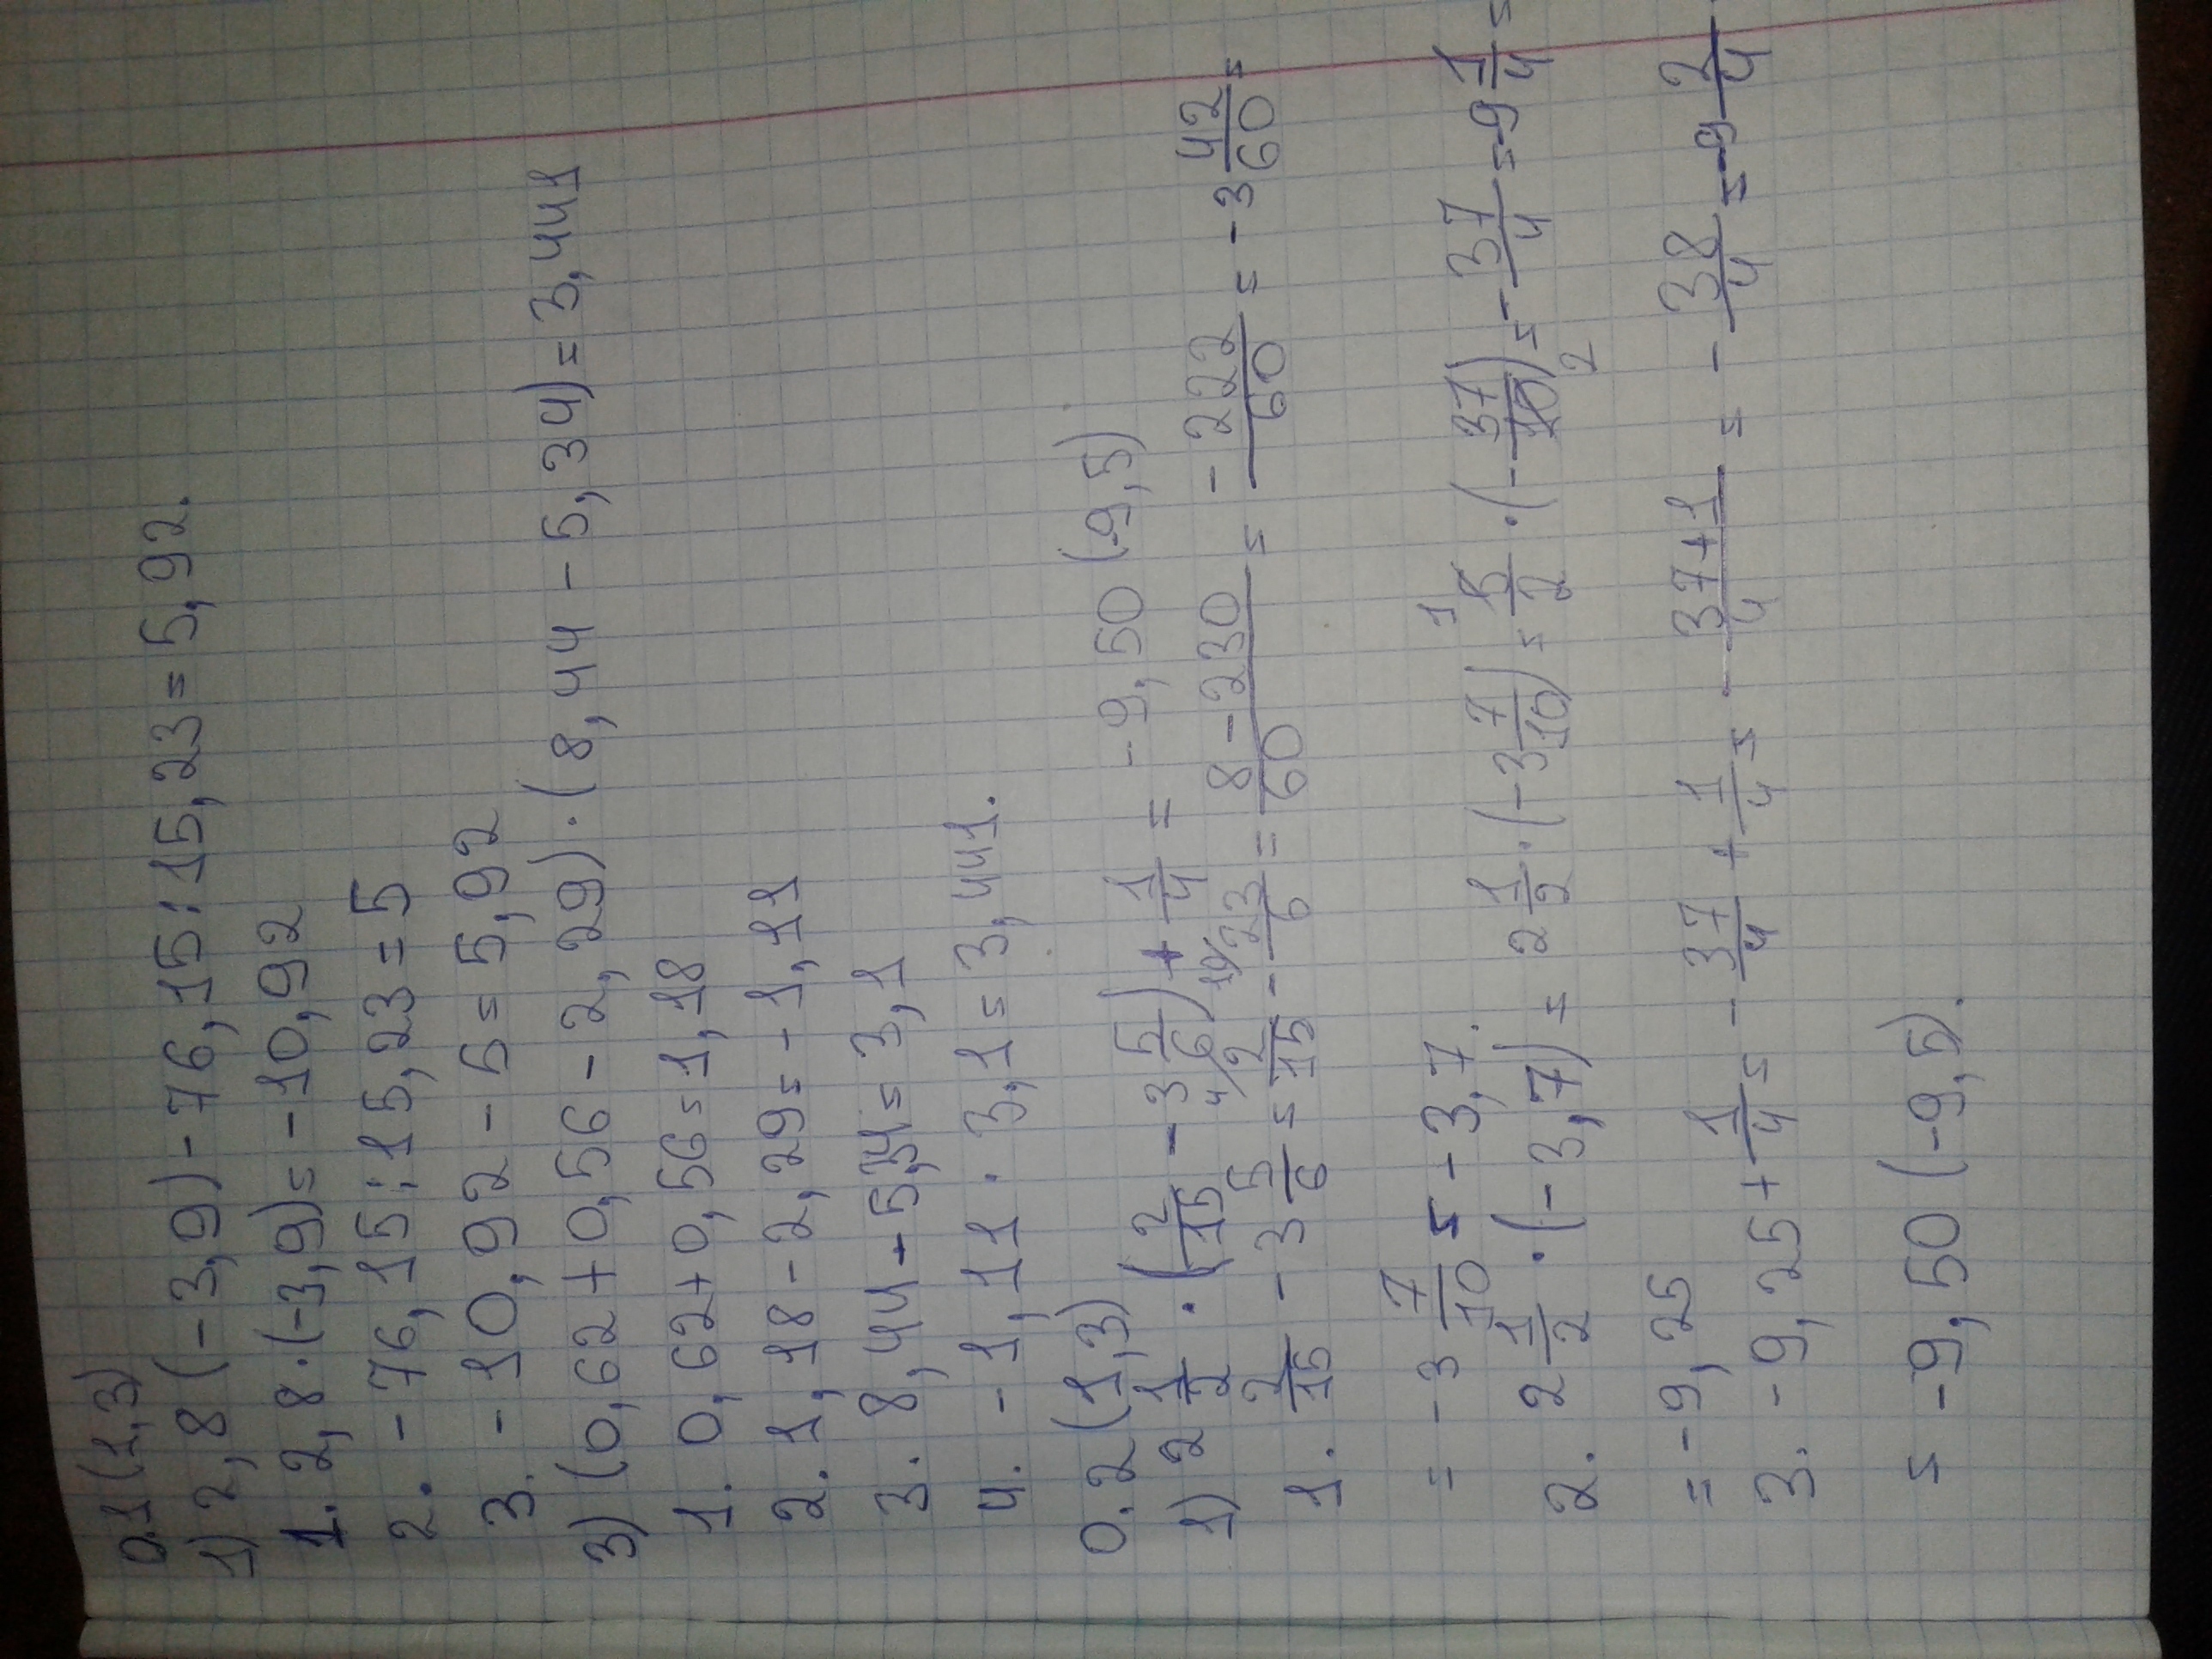 0.1 (1,3)
1) 2,8 (-3,9) - 76,15 : 15,23 = 5,92.
1. 2,8 · (-3,9) = -10,92
2. - 76,15 : 15,23 = 5
3. - 10,92 - 5 = 5,92
3) (0,62 + 0,56 - 2,29) · (8,44 - 5,34) = 3,441
1. 0,62 + 0,56 = 1,18
2. 1,18 - 2,29 = -1,11
3. 8,44 - 5,34 = 3,1
4. -1,11 · 3,1 = 3,441.
0.2 (1,3)
1) 2 1/2 · (2/15 - 3 5/6) + 1/4 = -9,50 (-9,5)
1. 2/15 - 3 5/6 = 4/ 2/15 - 10/ 23/6 = 8-230/60 = - 222/60 = -3 42/60 =
= -3 7/10 = -3,7.
2. 2 1/2 · (-3,7) = 2 1/2 · (-3 7/10) = 1 5/2 · (- 37/10) 2 = - 37/4 = -9 1/4 =
= -9,25
3. -9,25 + 1/4 = - 37/4 + 1/4 = - 37+1/4 = - 38/4 = -9 2/4
= -9,50 (-9,5).